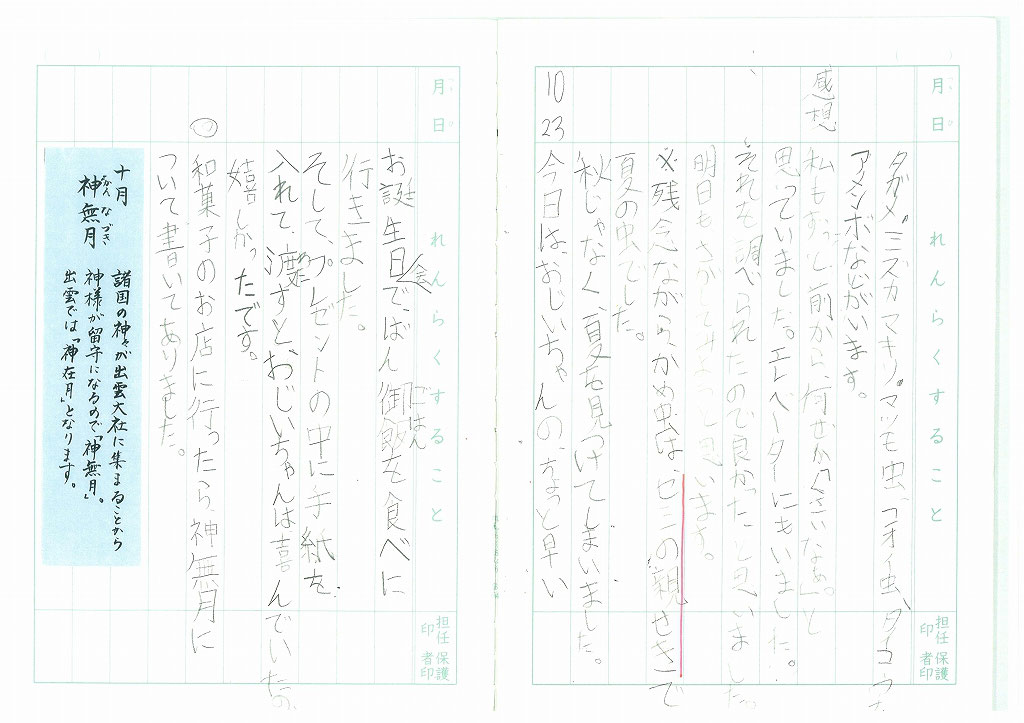 月 日
れんらくすること
担任印
保護者印
タガメ、ミズカマキリ、マツモ虫、コオイ虫、タイコウ
アメンボなどがいます。
感想
私もずっと前から、何せか「くさいなぁ。」と
思っていました。エレベーターにもいました。
それも調べられたので良かったと思いました。
明日もさがしてみようと思います。
※残念ながら、かめ虫は、セミの親せきで
夏の虫でした。
秋じゃなく、夏を見つけてしまいました。
10 23
今日は、おじいちゃんの、ちょっと早い
月 日
れんらくすること
担任印
保護者印
お誕生日会で、ばん御飯を食べに
ごはん
行きました。
そして、プレゼントの中に手紙を
入れて、渡すとおじいちゃんは喜んでいたの
わた
嬉しかったです。
和菓子のお店に行ったら、神無月に
ついて書いてありました。
十月
神無月
かんなづき
諸国の神々が出雲大社に集まることから
神様が留守になるので「神無月」。
出雲では「神在月」となります。